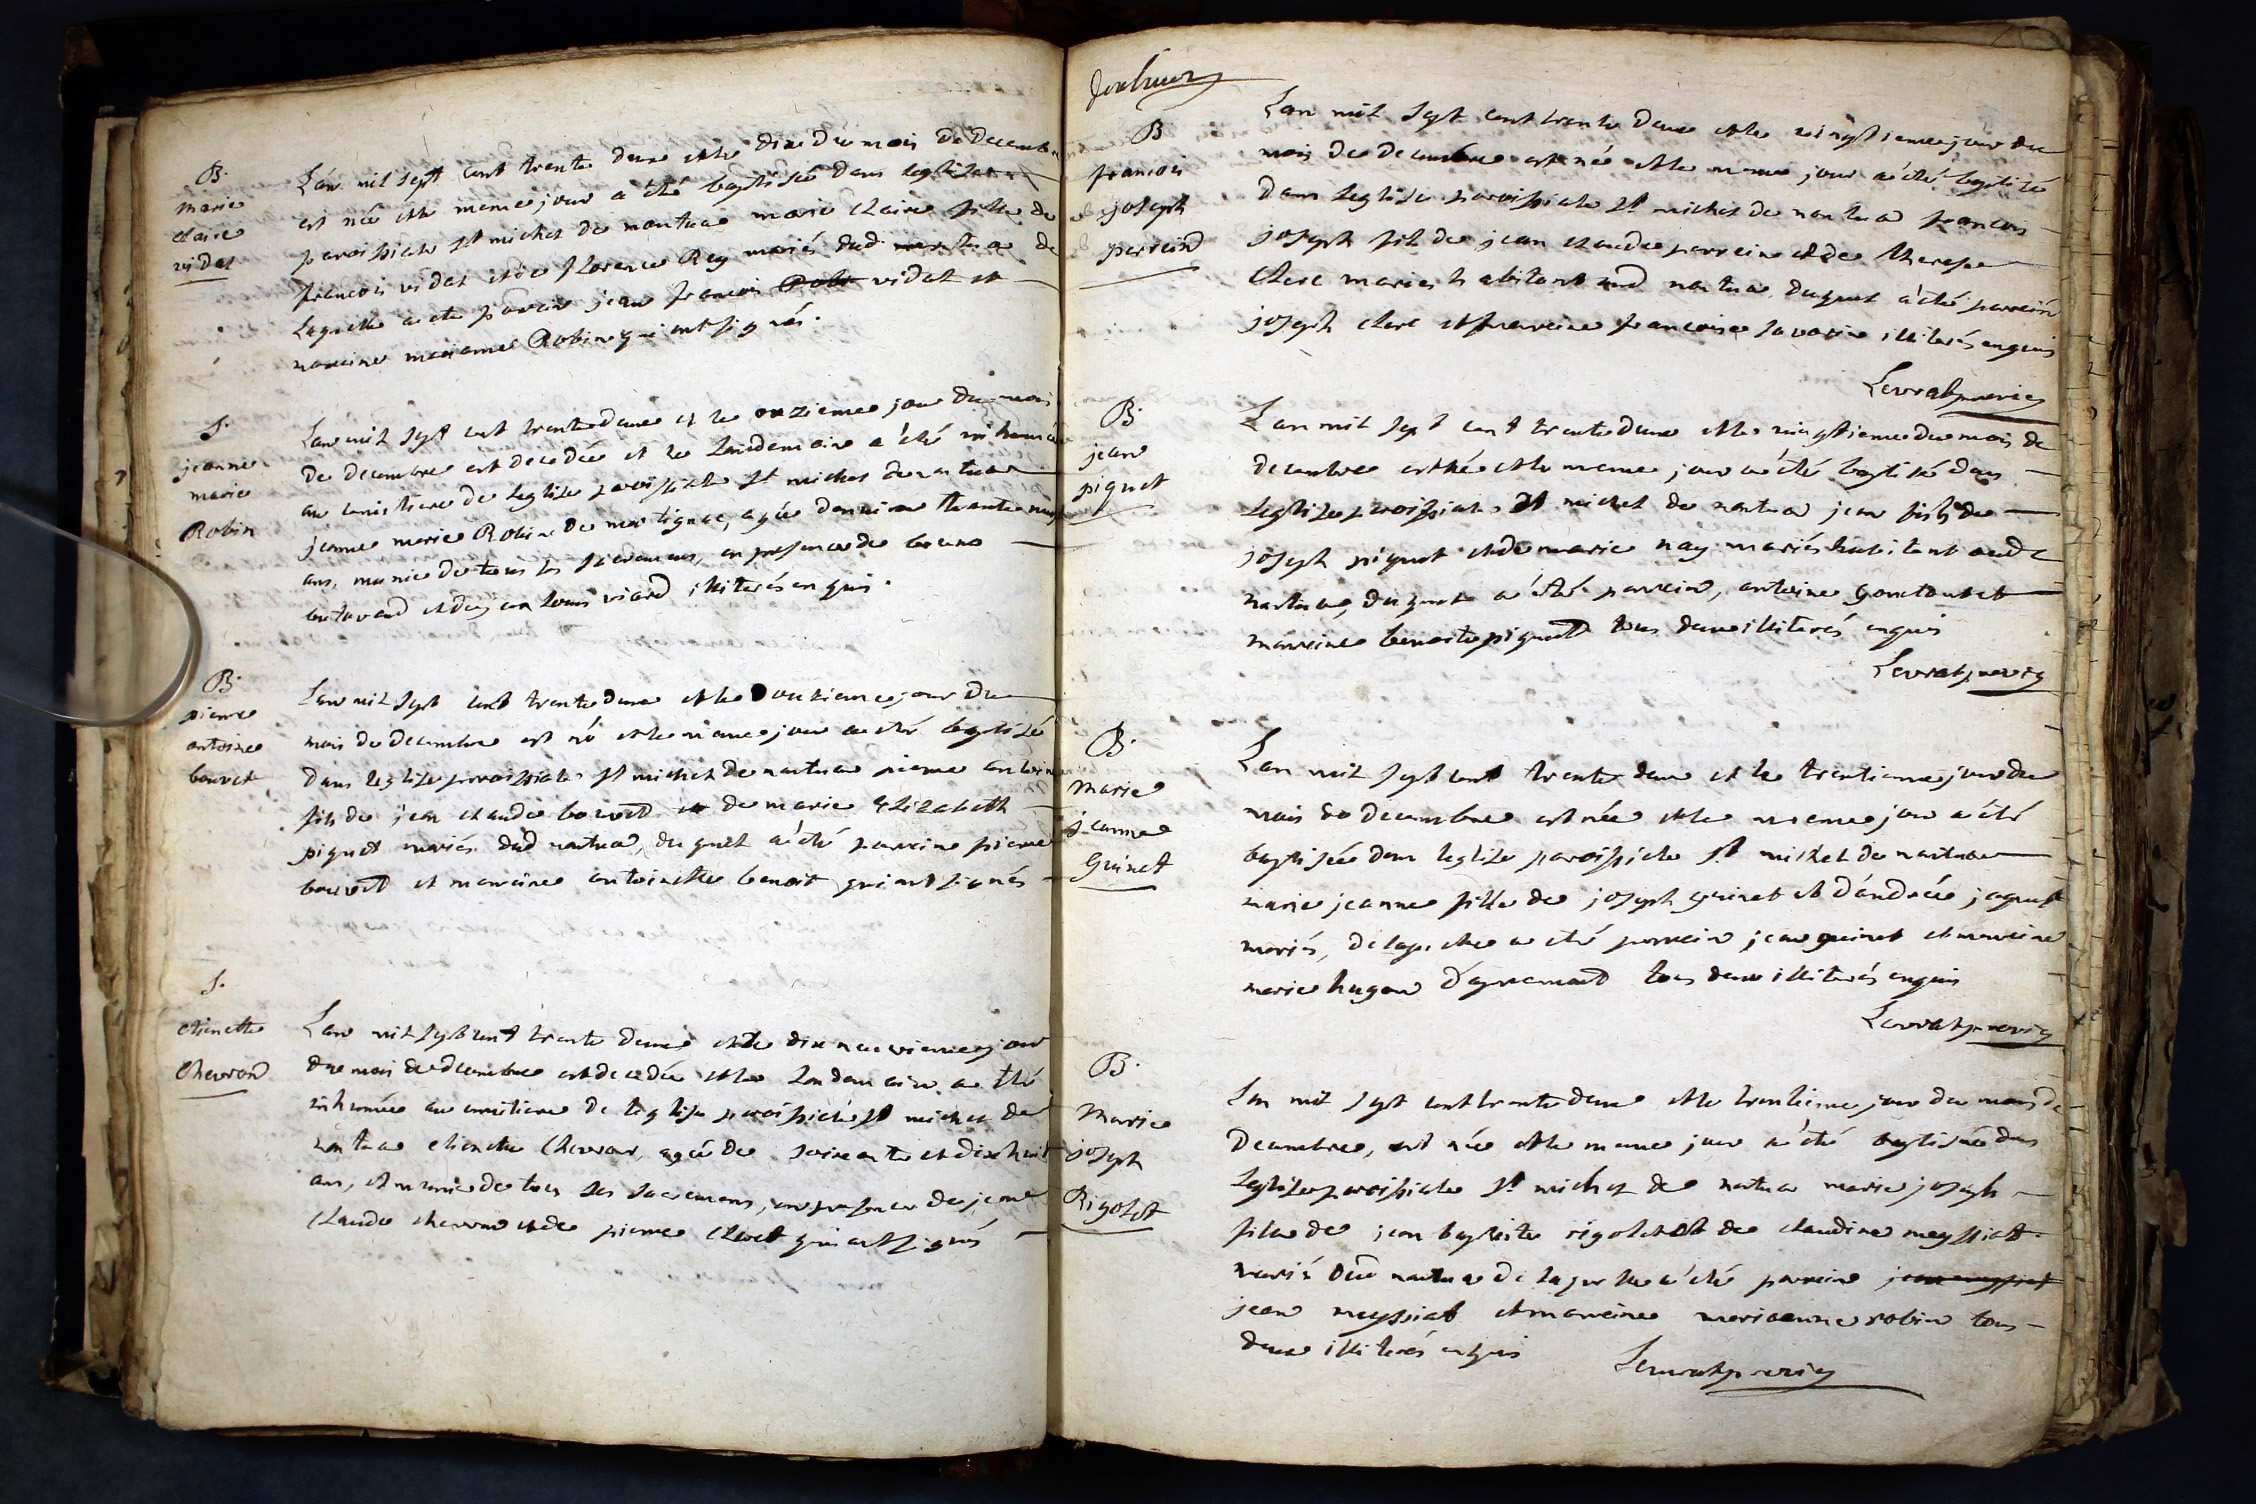 B.
marie
claire
vidal
L'an mil sept cent trente deux et le dix du mois de decembre
est née et le meme jour a été baptisée dans leglise
paroissiale st michel de nantua marie claire fille de
francois vidal et de florence Rey mariés dud nantua de
laquelle a ete parein jean francois Robi vidal et
mareine marianne Robin qui ont signés.
S.
jeanne
marie
Robin
L'an mil sept cent trente deux et le onzieme jour du mois
de decembre est decedée et le landemain a été inhumée
au cimetiere de leglise paroissiale st michel de nantua
jeanne marie Robin de martignac, agée denviron trente neuf
ans, munie de tous les sacremens, en presence de
et de jean louis viard illiterés enquis.
B.
pierre
antoine
bouvet
L'an mil sept cent trente deux et le douzieme jour du
mois de decembre est né et le meme jour a eté baptisé
dans leglise paroissiale st michel de nantua pierre antoine
fils de jean claude bouvet et de marie Elizabeth
piquet mariés dud nantua, duquel a été parrein pierre
bouvet et mareine antoinette benoit qui ont signés
S.
etienette
Chevron
L'an mil sept cent trente deux et le dix neuvieme jour
du mois de decembre est decedée et le landemain a eté
inhumée au cimetiere de leglise paroissiale st michel de
nantua etienette Chevron, agée de soixante et dix huit
ans, et munie de tous ses sacremens, en presence de jean
Claude chevron et de pierre Clerc qui ont signés
B.
francois
joseph
perrein
L'an mil sept cent trente deux et le vingtieme jour du
mois de decembre est né et le meme jour a été baptisé
dans leglise paroissiale st michel de nantua francois
joseph fils de jean claude perrein et de therese
Clerc mariés habitant aud nantua, duquel a été parrein
joseph clerc et marreine francoise savarin illiterés enquis
Levrat vic
B.
jean
piquet
L'an mil sept cent trente deux et le vingtieme du mois de
decembre est né et le meme jour a été baptisé dans
leglise paroissiale st michel de nantua jean fils de
joseph piquet et de marie nay mariés habitant aud
nantua, duquel a été parrein, antoine et
marreine benoite piquet tous deux illiterés enquis
Levrat vic
B.
marie
jeanne
Guinet
L'an mil sept cent trente deux et le trentieme jour du
mois de decembre est née et le meme jour a été
baptisée dans leglise paroissiale st michel de nantua
marie jeanne fille de joseph guinet et d'andrée jaquet
mariés, de laquelle a eté parrein jean guinet et marreine
marie hugon d'apremont tous deux illiterés enquis
Levrat vic
B.
Marie
joseph
Rigolet
L'an mil sept cent trente deux et le trentieme jour du mois de
decembre, est née et le meme jour a été baptisée dans
leglise paroissiale st michel de nantua marie joseph
fille de jean baptiste rigolet et de claudine meyssiat
mariés dud nantua de laquelle a été parrein jean meyssiat
jean meyssiat et marreine marianne robin tous
deux illiterés enquis
Levrat vic